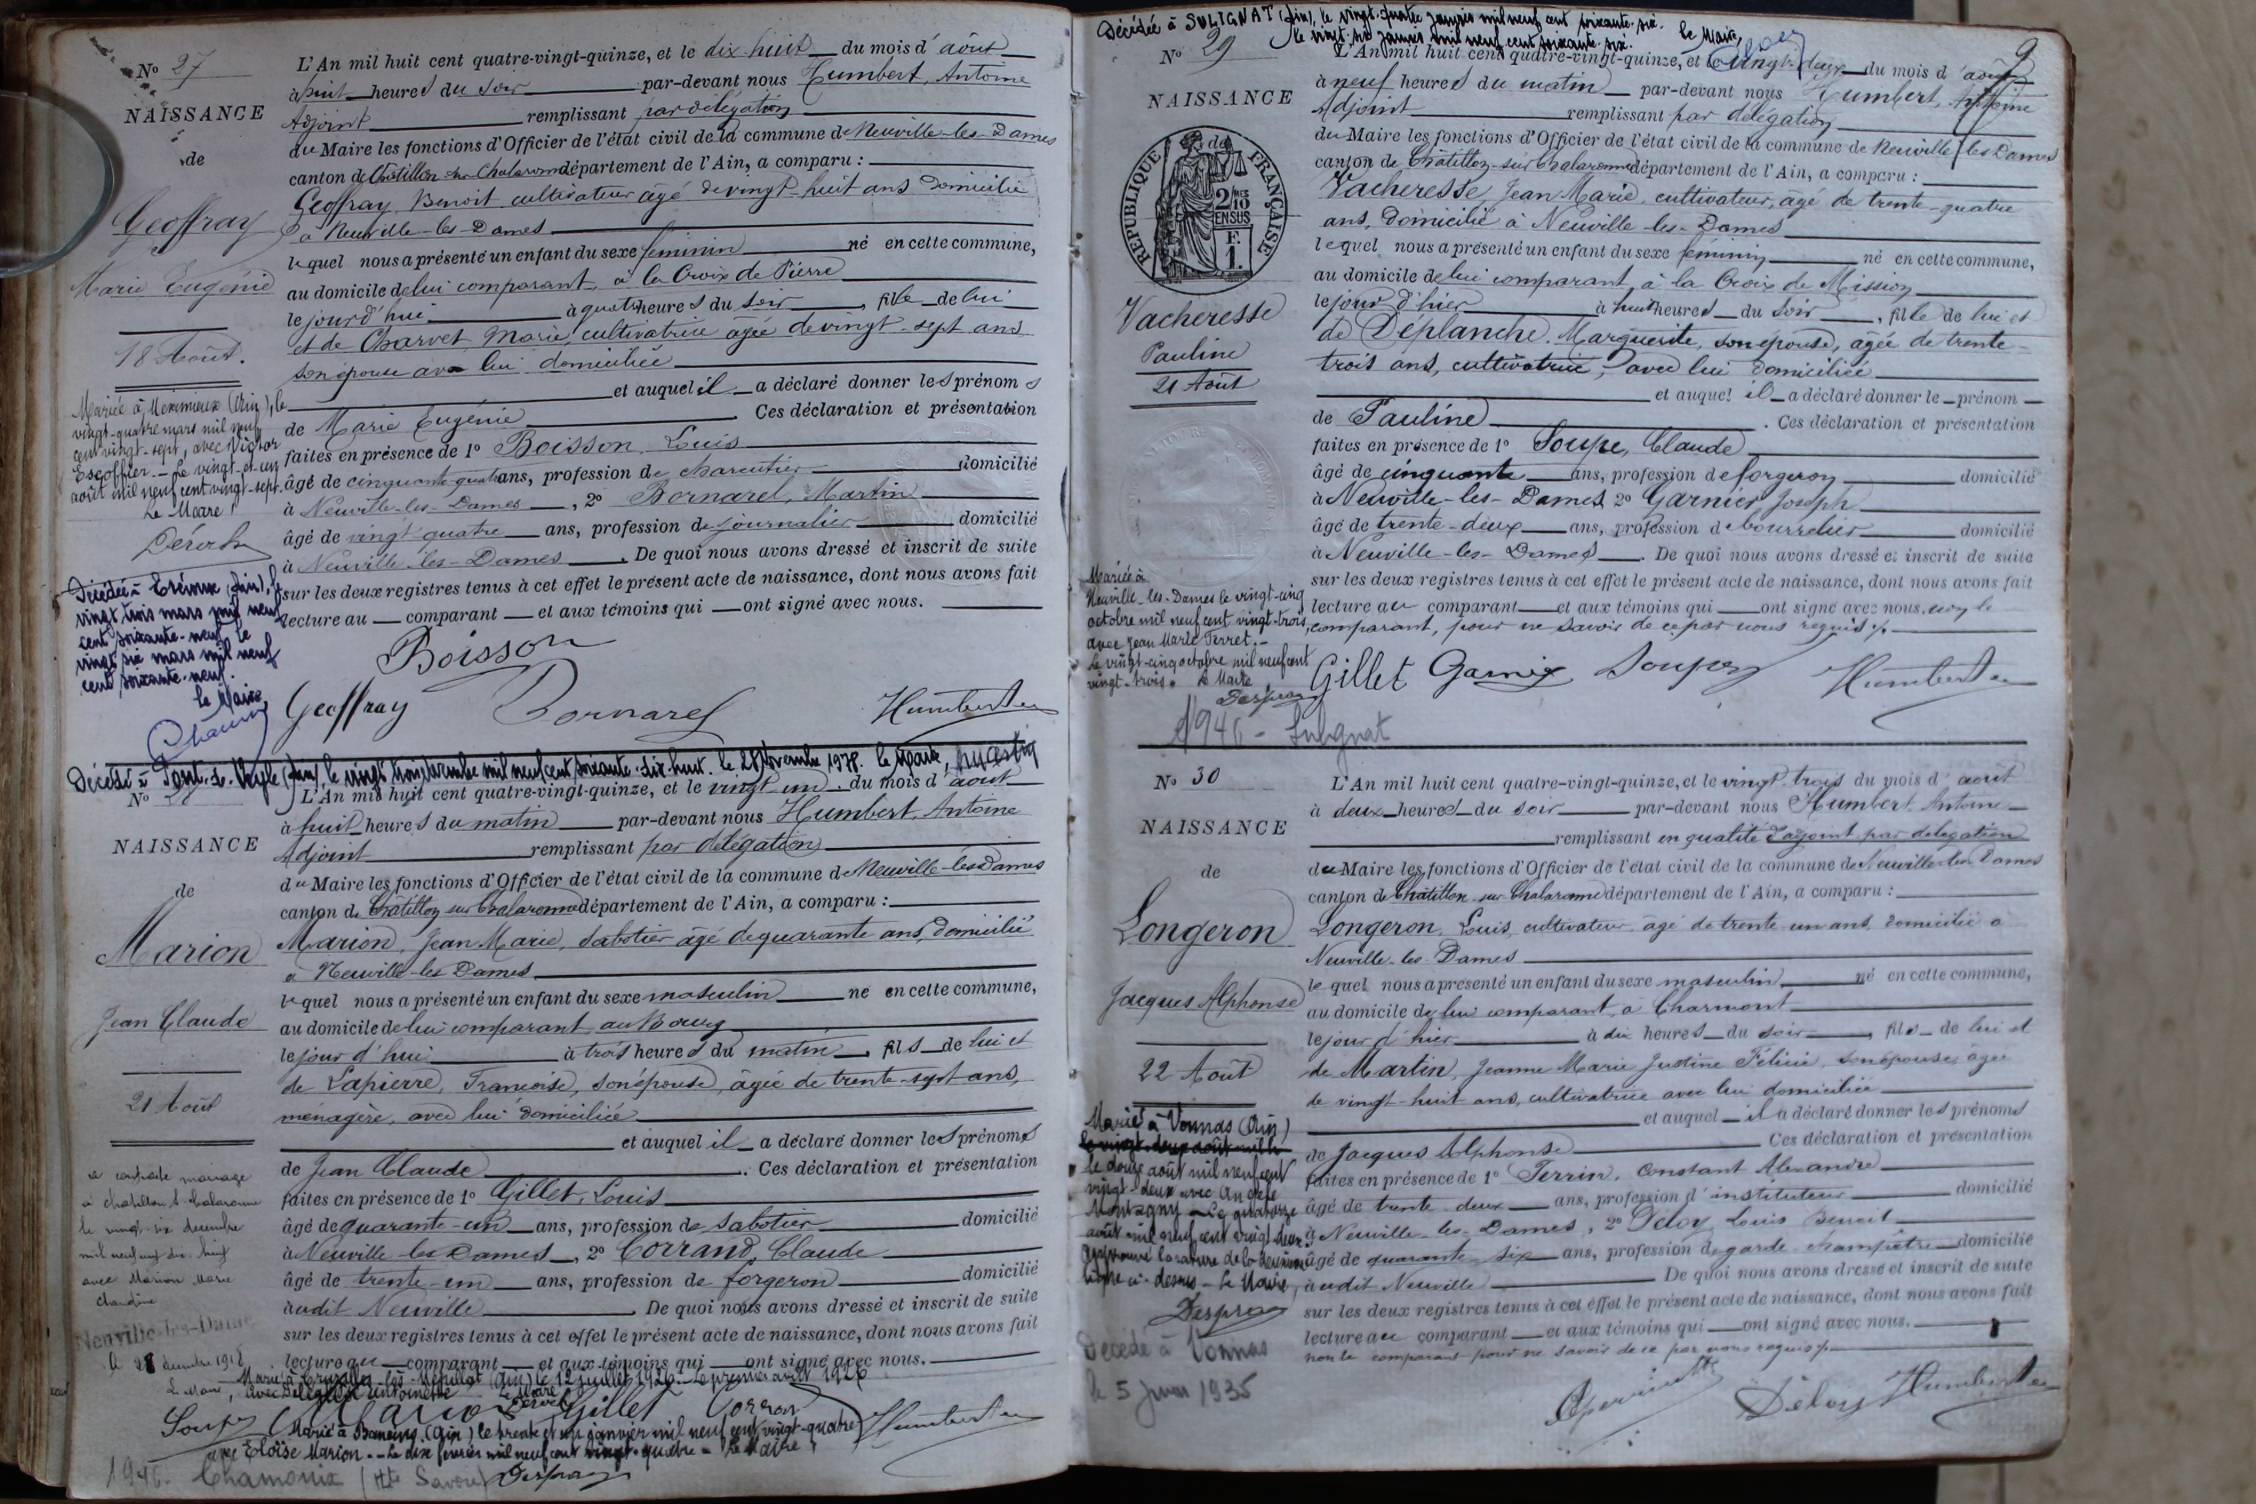 No 27
NAISSANCE
de
Geoffray
Marie Eugénie
18 Août.
Mariée à Meximieux (Ain), le
vingt-quatre mars mil neuf
cent vingt-sept, avec Victor
Escoffier. - Le vingt-et-un
août mil neuf cent vingt-sept.
Le Maire
Décédée à (Ain), le
vingt trois mars mil neuf
cent soixante-neuf le
vingt six mars mil neuf
cent soixante-neuf.
Le Maire,
L'An mil huit cent quatre-vingt-quinze, et le dix-huit du mois d'août
à huit heures du soir par-devant nous Humbert, Antoine
Adjoint remplissant par délégation
du Maire les fonctions d'Officier de l'état civil de la commune de Neuville-les-Dames
canton de Châtillon-sur-Chalaronne département de l'Ain, a comparu :
Geoffray, Benoit cultivateur âgé de vingt-huit ans domicilié
à Neuville-les-Dames
lequel nous a présenté un enfant du sexe féminin né en cette commune,
au domicile de lui comparant, à la Croix de Pierre
le jour d'hui à quatre heures du soir, fille de lui
et de Charvet Marie, cultivatrice âgée de vingt-sept ans
son épouse avec lui domiciliée
et auquel il a déclaré donner les prénoms
de Marie Eugénie. Ces déclaration et présentation
faites en présence de 1° Boisson, Louis
âgé de cinquante quatre ans, profession de charcutier domicilié
à Neuville-les-Dames, 2° Bornarel, Martin
âgé de vingt quatre ans, profession de journalier domicilié
à Neuville-les-Dames. De quoi nous avons dressé et inscrit de suite
sur les deux registres tenus à cet effet le présent acte de naissance, dont nous avons fait
lecture au comparant et aux témoins qui ont signé avec nous.
Boisson
Geoffray Bornarel Humbert
Décédé à Pont-de-Veyle (Ain), le vingt trois novembre mil neuf cent soixante-dix-huit. le 28 Novembre 1978. Le Maire,
No
NAISSANCE
de
Marion
Jean Claude
21 Août
a contracté mariage
à Chatillon s/ Chalaronne
le vingt-six décembre
mil neuf cent dix huit
avec Marion Marie
Claudine
Neuville-les-Dames
le 28 décembre 1918
Le Maire,
L'An mil huit cent quatre-vingt-quinze, et le vingt un du mois d'août
à huit heures du matin par-devant nous Humbert, Antoine
Adjoint remplissant par délégation
du Maire les fonctions d'Officier de l'état civil de la commune de Neuville-les-Dames
canton de Châtillon sur Chalaronne département de l'Ain, a comparu :
Marion, Jean Marie, sabotier âgé de quarante ans, domicilié
à Neuville-les-Dames
lequel nous a présenté un enfant du sexe masculin né en cette commune,
au domicile de lui comparant au Bourg
le jour d'hui à trois heures du matin, fils de lui et
de Lapierre, Françoise, son épouse, âgée de trente-sept ans,
ménagère, avec lui domiciliée
et auquel il a déclaré donner les prénoms
de Jean Claude. Ces déclaration et présentation
faites en présence de 1° Gillet, Louis
âgé de quarante-un ans, profession de sabotier domicilié
à Neuville les Dames, 2° Corrand, Claude
âgé de trente-un ans, profession de forgeron domicilié
audit Neuville. De quoi nous avons dressé et inscrit de suite
sur les deux registres tenus à cet effet le présent acte de naissance, dont nous avons fait
lecture au comparant et aux témoins qui ont signé avec nous.
Marié à (Ain) le 12 juillet 1926. Le premier août 1926
avec Antoinette Le Maire
Gillet Humbert
Marié à Baneins (Ain) le trente et un janvier mil neuf cent vingt-quatre
avec Eloïse Marion. - Le dix février mil neuf cent vingt-quatre - Le Maire,
1946. Chamonix (Hte Savoie)
Décédée à SULIGNAT (Ain), le vingt-quatre janvier mil neuf cent soixante-six.
le vingt-six janvier mil neuf cent soixante-six. Le Maire,
9
No 29
NAISSANCE
RÉPUBLIQUE FRANÇAISE
2/10 EN SUS
F. 1.
Vacheresse
Pauline
21 Août
Mariée à
Neuville-les-Dames le vingt-cinq
octobre mil neuf cent vingt-trois,
avec Jean Marie Perret. -
Le vingt-cinq octobre mil neuf cent
vingt-trois. Le Maire
L'An mil huit cent quatre-vingt-quinze, et le vingt-deux du mois d'août
à neuf heures du matin par-devant nous Humbert, Antoine
Adjoint remplissant par délégation
du Maire les fonctions d'Officier de l'état civil de la commune de Neuville-les-Dames
canton de Châtillon-sur-Chalaronne département de l'Ain, a comparu :
Vacheresse, Jean Marie, cultivateur, âgé de trente-quatre
ans, domicilié à Neuville-les-Dames
lequel nous a présenté un enfant du sexe féminin né en cette commune,
au domicile de lui comparant, à la Croix de Mission
le jour d'hier à huit heures du soir, fille de lui et
de Déplanche, Marguerite, son épouse, âgée de trente-
trois ans, cultivatrice, avec lui domiciliée
et auquel il a déclaré donner le prénom
de Pauline. Ces déclaration et présentation
faites en présence de 1° Soupe, Claude
âgé de cinquante ans, profession de forgeron domicilié
à Neuville-les-Dames 2° Garnier, Joseph
âgé de trente-deux ans, profession de bourrelier domicilié
à Neuville-les-Dames. De quoi nous avons dressé et inscrit de suite
sur les deux registres tenus à cet effet le présent acte de naissance, dont nous avons fait
lecture au comparant et aux témoins qui ont signé avec nous, non le
comparant, pour ne savoir de ce par nous requis
Gillet Garnier Soupe Humbert
1946 - Sulignat
No 30
NAISSANCE
de
Longeron
Jacques Alphonse
22 Août
Marié à Vonnas (Ain)
le vingt-deux août mil
le douze août mil neuf cent
vingt-deux avec Andrée
Montagny - Le quatorze
août mil neuf cent vingt deux.
Approuvé la rature de la deuxième
ligne ci-dessus - Le Maire,
Décédé à Vonnas
le 5 Juin 1935
L'An mil huit cent quatre-vingt-quinze, et le vingt-trois du mois d'août
à deux heures du soir par-devant nous Humbert, Antoine
remplissant en qualité d'adjoint par délégation
du Maire les fonctions d'Officier de l'état civil de la commune de Neuville-les-Dames
canton de Châtillon-sur-Chalaronne département de l'Ain, a comparu :
Longeron, Louis, cultivateur, âgé de trente-un ans, domicilié à
Neuville-les-Dames
lequel nous a présenté un enfant du sexe masculin né en cette commune,
au domicile de lui comparant, à Charmont
le jour d'hier à dix heures du soir, fils de lui et
de Martin, Jeanne Marie Justine Félicie, son épouse, âgée
de vingt-huit ans, cultivatrice avec lui domiciliée
et auquel il a déclaré donner les prénoms
de Jacques Alphonse. Ces déclaration et présentation
faites en présence de 1° Perrin, Constant Alexandre
âgé de trente-deux ans, profession d'instituteur domicilié
à Neuville-les-Dames, 2° Déloy, Louis Benoit
âgé de quarante-six ans, profession de garde-champêtre domicilié
audit Neuville De quoi nous avons dressé et inscrit de suite
sur les deux registres tenus à cet effet le présent acte de naissance, dont nous avons fait
lecture au comparant et aux témoins qui ont signé avec nous.
non le comparant pour ne savoir de ce par nous requis
Déloy Humbert